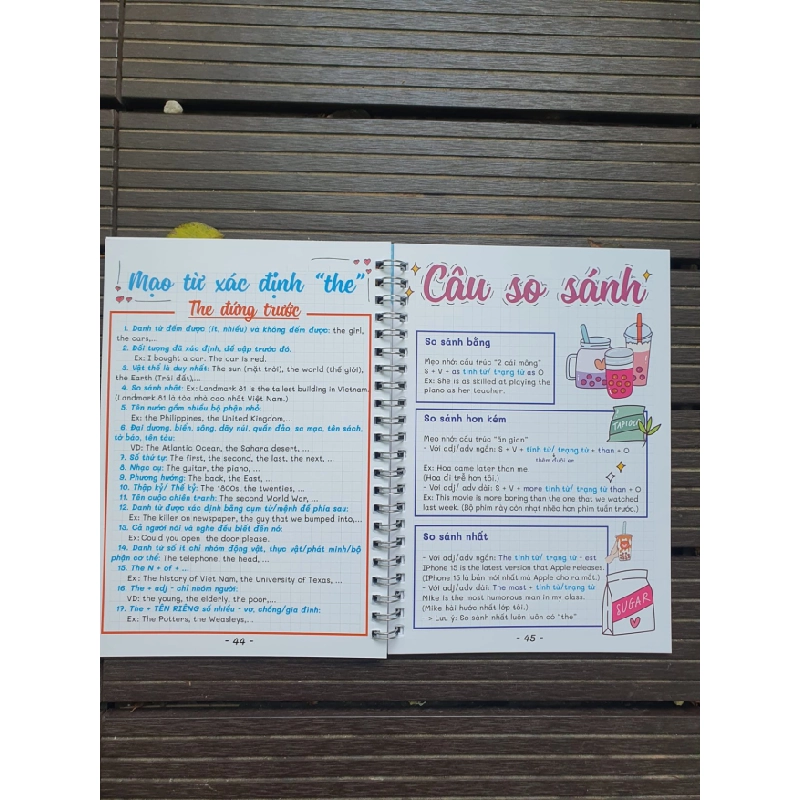 Mạo từ xác định "the"
The đứng trước
1. Danh từ đếm được (ít, nhiều) và không đếm được: the girl,
the cars,...
2. Đối tượng đã xác định, đề cập trước đó.
Ex: I bought a car. The car is red.
3. Vật thể là duy nhất: The sun (mặt trời), the world (thế giới),
the Earth (Trái đất),...
4. So sánh nhất: Ex: Landmark 81 is the talest building in Vietnam.
(Landmark 81 là tòa nhà cao nhất Việt Nam.)
5. Tên nước gồm nhiều bộ phận nhỏ:
Ex: the Philippines, the United Kingdom,...
6. Đại dương, biển, sông, dãy núi, quần đảo, sa mạc, tên sách,
tờ báo, tên tàu:
VD: The Atlantic Ocean, the Sahara desert, ...
7. Số thứ tự: The first, the second, the last, the next, ...
8. Nhạc cụ: The guitar, the piano, ...
9. Phương hướng: The back, the East, ...
10. Thập kỷ/ Thế kỷ: The 1800s, the twenties, ...
11. Tên cuộc chiến tranh: The second World War, ...
12. Danh từ được xác định bằng cụm từ/mệnh đề phía sau:
Ex: The killer on newspaper, the guy that we bumped into,...
13. Cả người nói và nghe đều biết đến nó:
Ex: Could you open the door please.
14. Danh từ số ít chỉ nhóm động vật, thực vật/phát minh/bộ
phận cơ thể: The telephone, the head, ...
15. The N + of + ...
Ex: The history of Viet Nam, the University of Texas, ...
16. The + adj - chỉ nhóm người:
VD: the young, the elderly, the poor,...
17. The + TÊN RIÊNG số nhiều - vợ, chồng/gia đình:
Ex: The Potters, the Weasleys,...
- 44 -
Câu so sánh
So sánh bằng
Mẹo nhớ: cấu trúc "2 cái mông"
S + V + as tính từ/ trạng từ as O
Ex: She is as stilled at playing the
piano as her teacher.
So sánh hơn kém
Mẹo nhớ: cấu trúc "ăn gian"
- Với adj/ adv ngắn: S + V + tính từ/ trạng từ + than + O
thêm đuôi er
Ex: Hoa came later than me.
(Hoa đi trễ hơn tôi.)
- Với adj/ adv dài: S + V + more tính từ/ trạng từ than + O
Ex: This movie is more boring than the one that we watched
last week. (Bộ phim này còn nhạt nhẽo hơn phim tuần trước.)
TAPIOCA
So sánh nhất
- Với adj/ adv ngắn: The tính từ/ trạng từ - est
IPhone 13 is the latest version that Apple releases.
(IPhone 13 là bản mới nhất mà Apple cho ra mắt.)
- Với adj/ adv dài: The most + tính từ/trạng từ
Mike is the most humorous man in my class.
(Mike hài hước nhất lớp tôi.)
> Lưu ý: So sánh nhất luôn luôn có "the"
SUGAR
- 45 -